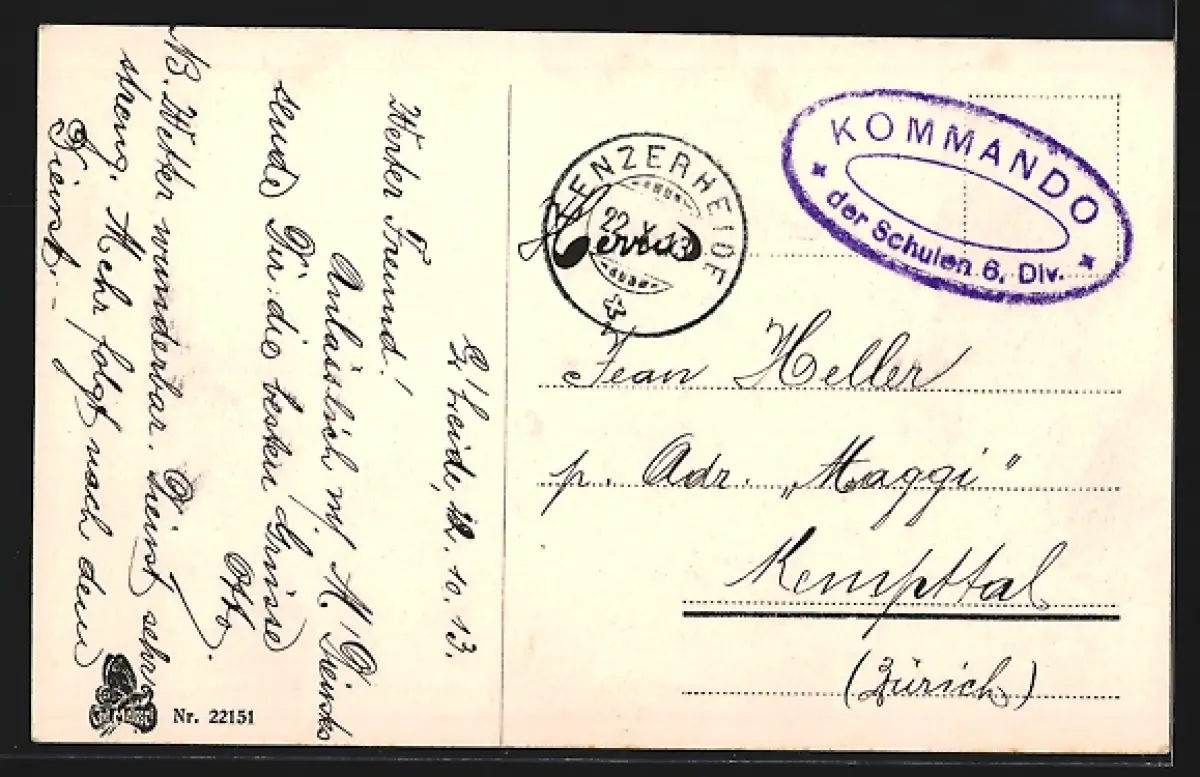 L'Heide, 22. 10. 13.
Werter Freund!
Anlässlich m/. M'Dienstes
sende Dir die besten Grüsse
Otto.
NB. Wetter wunderbar. Dienst sehr
streng. Mehr folgt nach dem
Dienst. –
Nr. 22151
KOMMANDO
der Schulen 6. Div.
LENZERHEIDE
22. X. 13
Herrn
Jean Heller
p. Adr. „Maggi"
Kempttal
(Zürich)